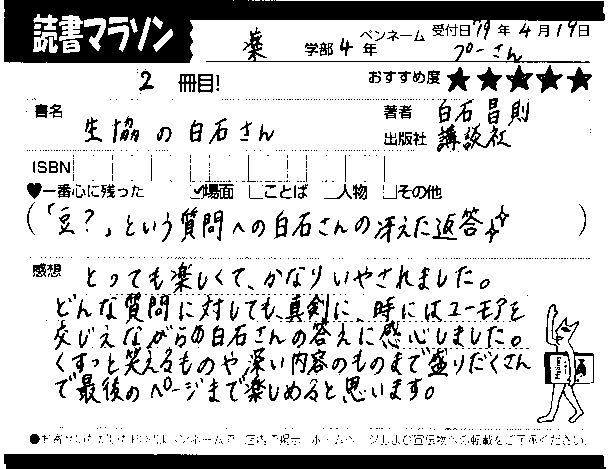 読書マラソン
薬 学部 4 年 ペンネーム プーさん 受付日 '79 年 4 月 19 日
2 冊目! おすすめ度 ★★★★★
書名 生協の白石さん
著者 白石昌則
出版社 講談社
ISBN
♥一番心に残った ✓場面 □ことば □人物 □その他
(「豆?」という質問への白石さんの冴えた返答)
感想 とっても楽しくて、かなりいやされました。
どんな質問に対しても真剣に、時にはユーモアを
交じえながらの白石さんの答えに感心しました。
くすっと笑えるものや深い内容のものまで盛りだくさん
で最後のページまで楽しめると思います。